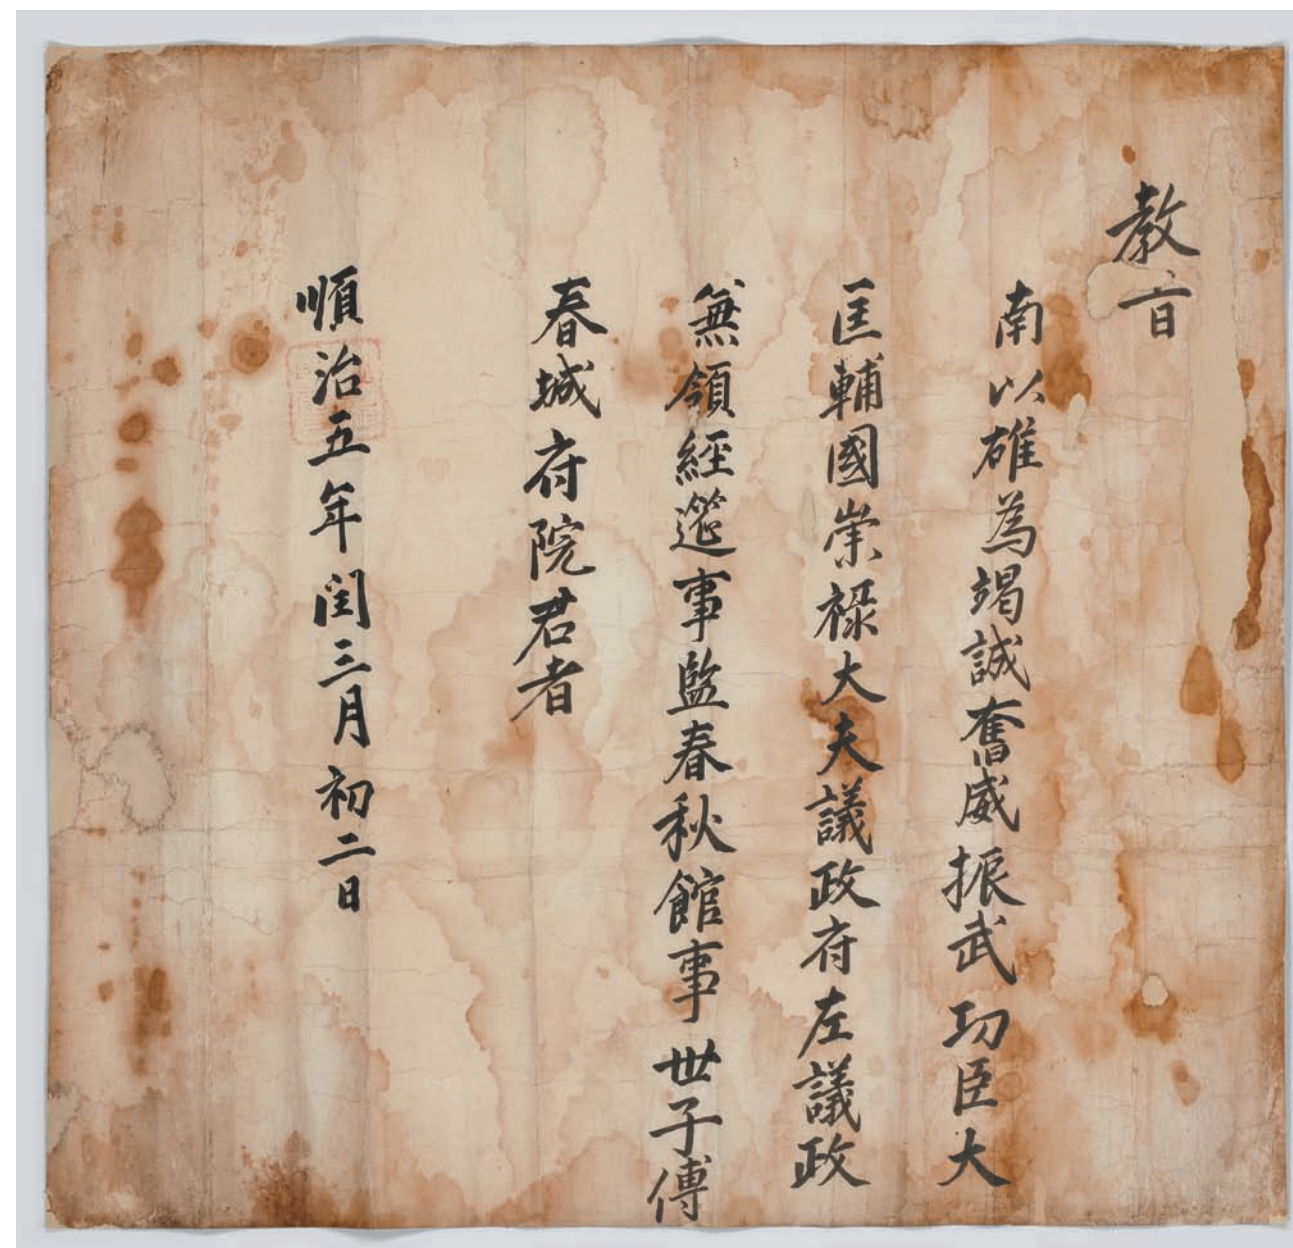 教旨
南以雄為竭誠奮威振武功臣大
匡輔國崇祿大夫議政府左議政
無領經筵事監春秋館事世子傅
春城府院君者
順治五年閏三月初二日